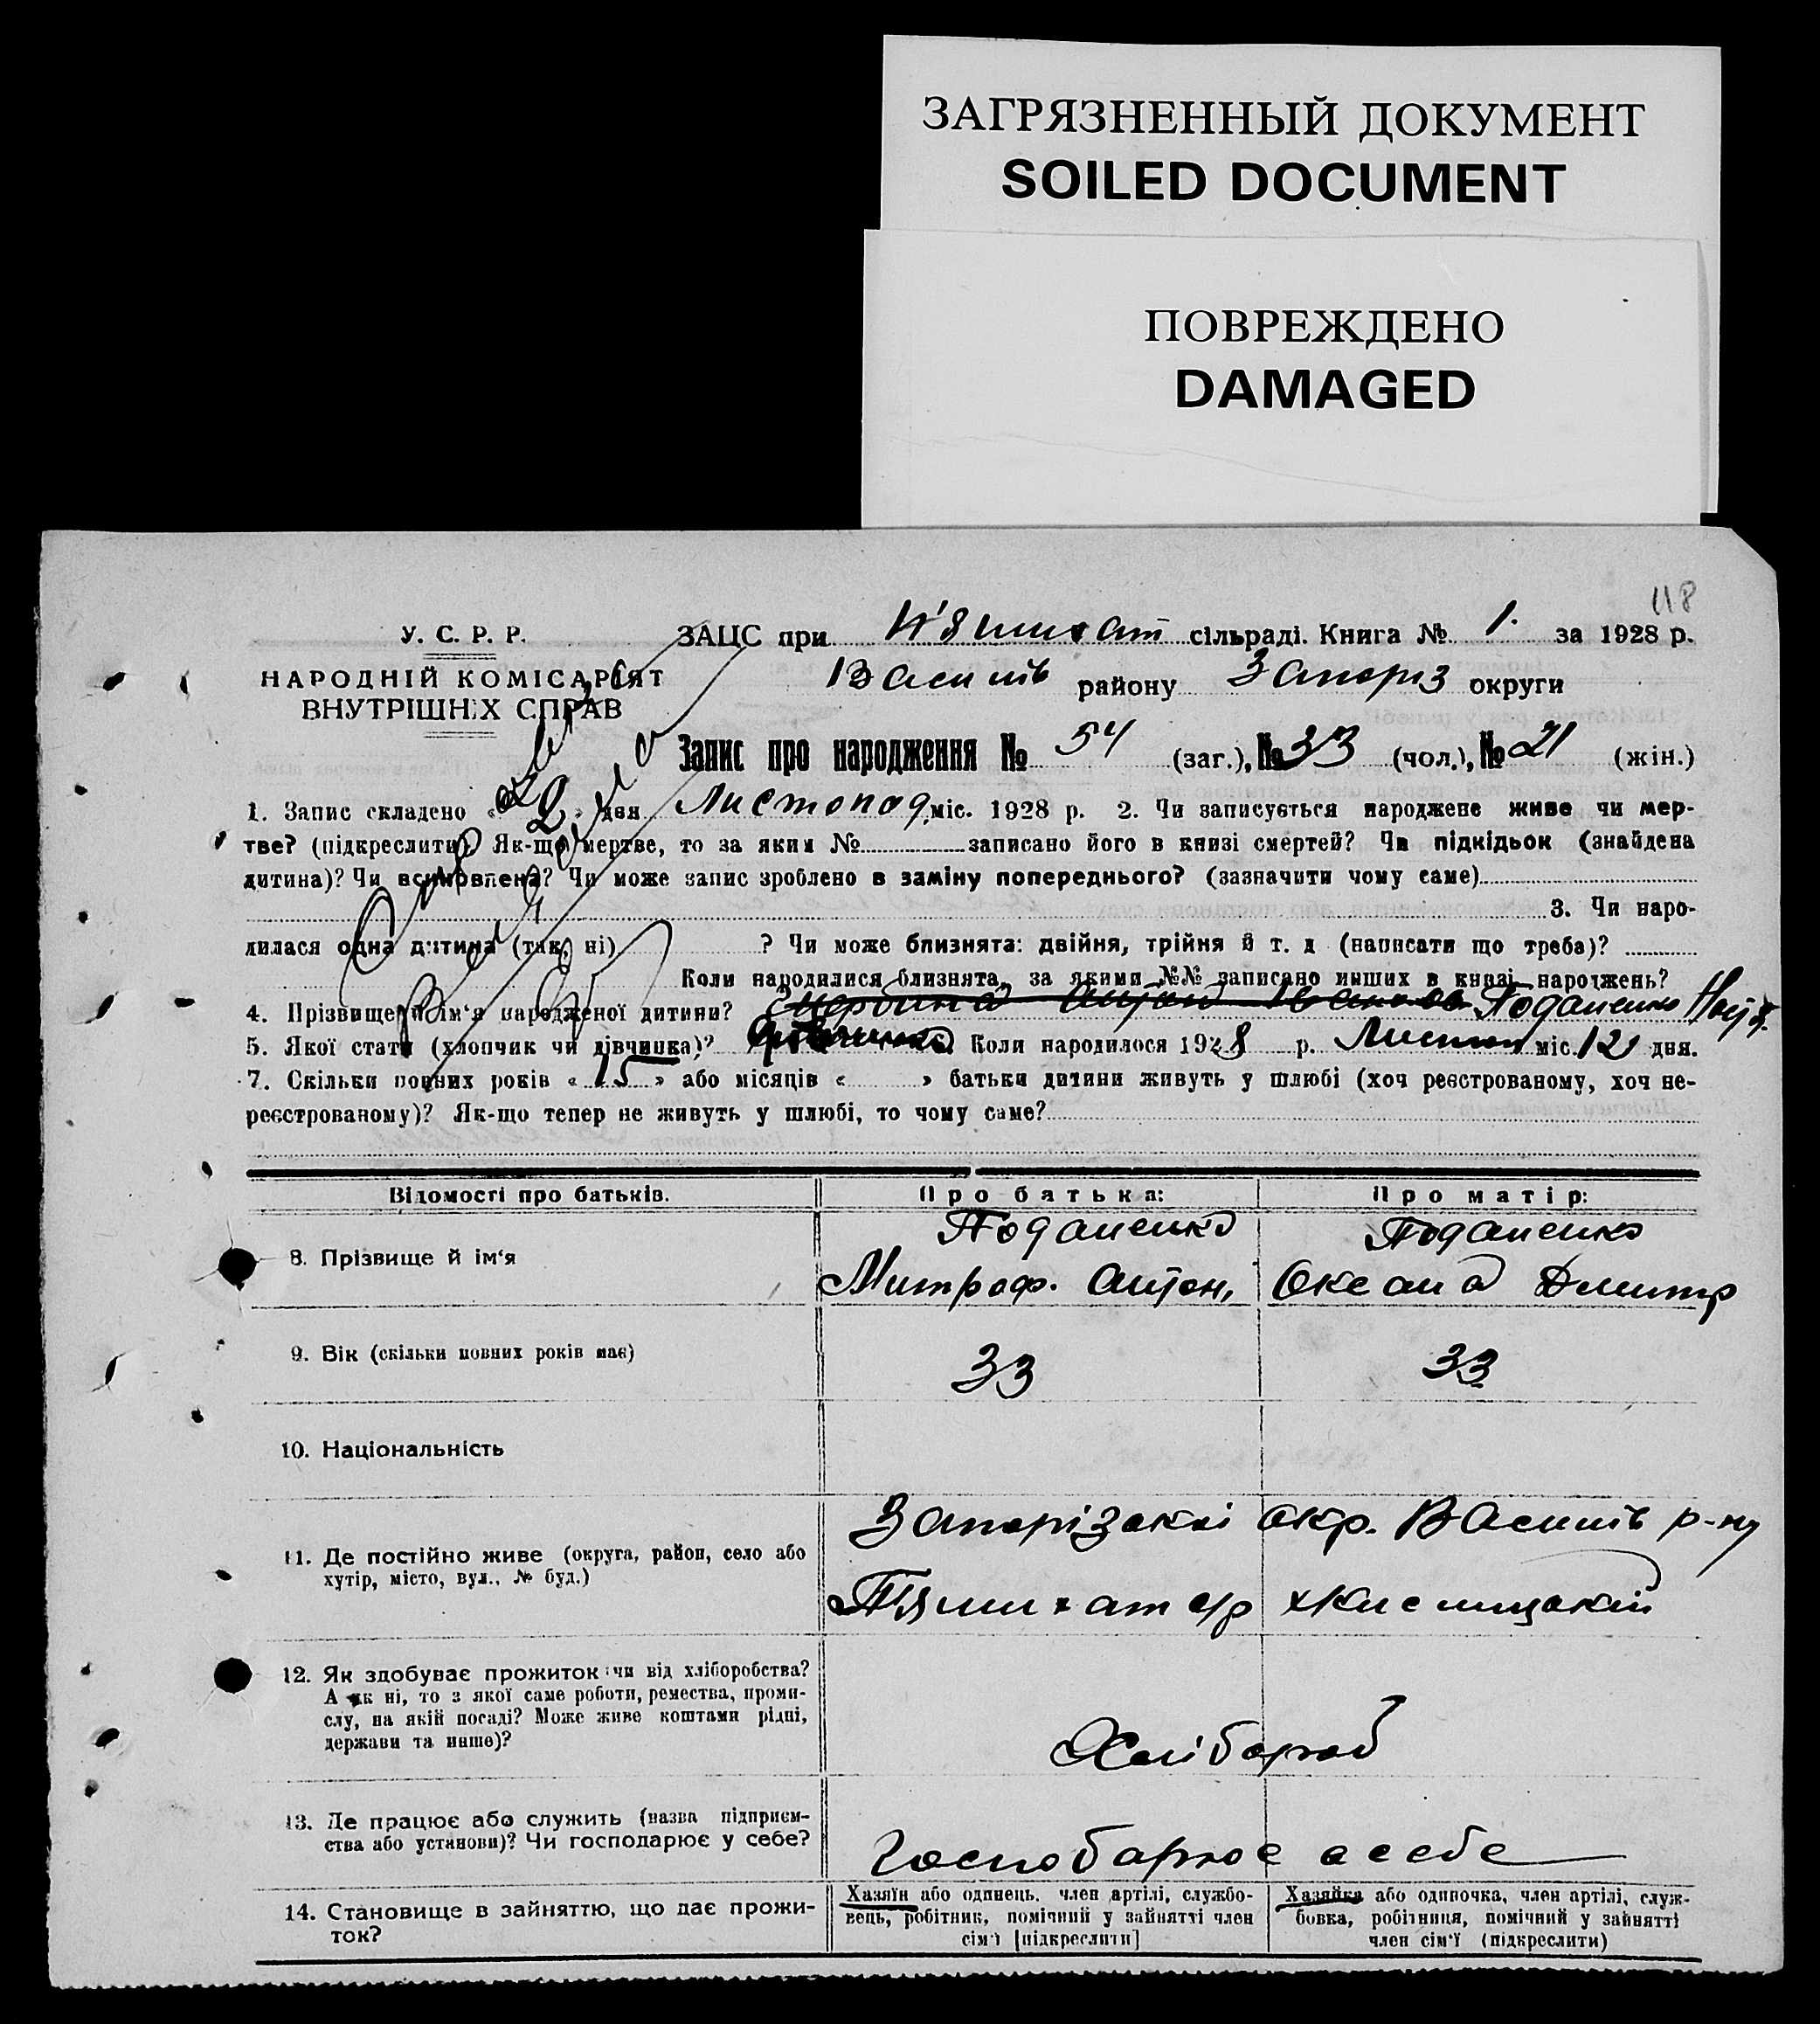 ЗАГРЯЗНЕННЫЙ ДОКУМЕНТ
SOILED DOCUMENT
ПОВРЕЖДЕНО
DAMAGED
118
У. С. Р. Р.
НАРОДНІЙ КОМІСАРІЯТ
ВНУТРІШНІХ СПРАВ
ЗАЦС при П'ятихат сільраді. Книга № 1. за 1928 р.
Василів району Запоріз округи
Запис про народження № 54 (заг.), № 33 (чол.), № 21 (жін.)
1. Запис складено « 2 » дня Листопад міс. 1928 р. 2. Чи записується народжене живе чи мер-
тве? (підкреслити) Як-що мертве, то за яким № записано його в книзі смертей? Чи підкідьок (знайдена
дитина)? Чи всиновлена? Чи може запис зроблено в заміну попереднього? (зазначити чому саме)
3. Чи наро-
дилася одна дитина (так, ні) ? Чи може близнята: двійня, трійня й т. д (написати що треба)?
Коли народилися близнята, за якими №№ записано инших в книзі народжень?
4. Прізвище й ім'я народженої дитини? Поданенко
5. Якої стати (хлопчик чи дівчинка)? Коли народилося 1928 р. Листоп міс. 12 дня.
7. Скільки повних років « 15 » або місяців « » батьки дитини живуть у шлюбі (хоч реєстрованому, хоч не-
реєстрованому)? Як-що тепер не живуть у шлюбі, то чому саме?
Відомості про батьків. Про батька: Про матір:
8. Прізвище й ім'я Поданенко Митроф. Антон, Поданенко Оксана Дмитр
9. Вік (скільки повних років має) 33 33
10. Національність
11. Де постійно живе (округа, район, село або
хутір, місто, вул., № буд.)
Запорізакої окр. Василів р-ну
П'ятихат с/р
12. Як здобуває прожиток: чи від хліборобства?
А як ні, то з якої саме роботи, ремества, проми-
слу, на якій посаді? Може живе коштами рідні,
держави та инше)?
Хлібороб
13. Де працює або служить (назва підприєм-
ства або установи)? Чи господарює у себе?
Господарює в себе
14. Становище в зайняттю, що дає прожи-
ток?
Хазяїн або одинець. член артілі, службо-
вець, робітник, помічний у зайнятті член
сім'ї [підкреслити]
Хазяйка або одиночка, член артілі, служ-
бовка, робітниця, помічний у зайнятті
член сім'ї (підкреслити)